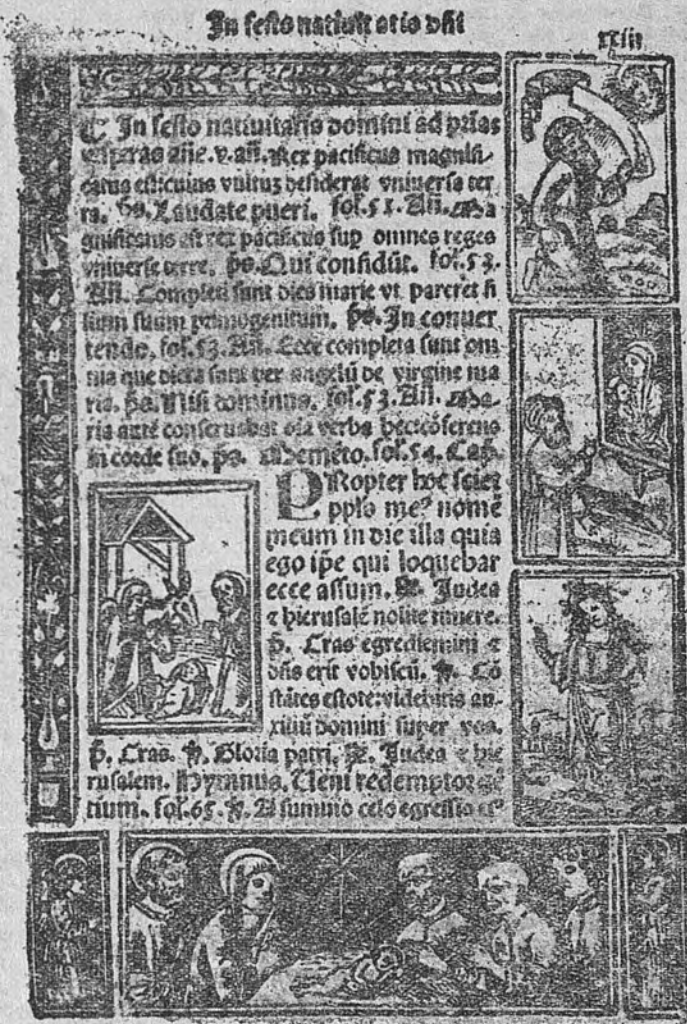 In festo nativit atis dñi
xxiii
C In festo natiuitatis domini ad primas
vesperas añe. v. añ. Rex pacificus magnifi-
catus est cuius vultuz desiderat vniuersa ter
ra. p̃s. Laudate pueri. fol. 51. Añ. Ma
gnificatus est rex pacificus sup omnes reges
vniuerse terre. p̃s. Qui confidūt. fol. 53.
Añ. Completi sunt dies marie vt pareret fi
lium suum primogenitum. p̃s. In conuer
tendo. fol. 53. Añ. Ecce completa sunt om
nia que dicta sunt per angelū de virgine ma
ria. p̃s. Nisi dominus. fol. 53. Añ. Ma-
ria autē conseruabat oīa verba hec cōferens
in corde suo. p̃s. Memēto. fol. 54. Cap.
PRopter hoc sciet
pplo me⁹ nomē
meum in die illa quia
ego ip̄e qui loquebar
ecce assum. ℟. Judea
⁊ hierusalē nolite timere.
p̄. Cras egrediemini ⁊
dñs erit vobiscū. ℣. Cō
stātes estote: videbitis au-
xiliū domini super vos.
p̄. Cras. ℣. Gloria patri. ℟. Judea ⁊ hie
rusalem. Hymnus. Ueni redemptor gē
tium. fol. 65. ℣. A summo celo egressio ei⁹